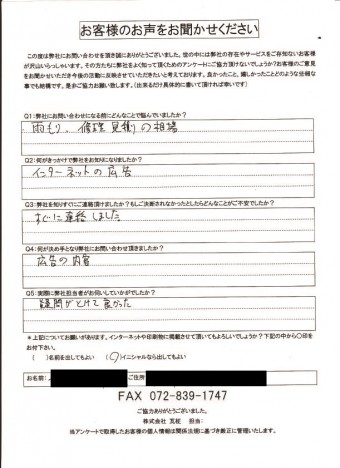 お客様のお声をお聞かせください
この度は弊社にお問い合わせを頂き誠にありがとうございました。世の中には弊社の存在やサービスをご存知ないお客様
が沢山いらっしゃいます。その方たちに弊社をよく知って頂くためのアンケートにご協力頂けないでしょうか?お客様のご意見
をお聞かせいただき今後の活動に反映させていただきたいと考えております。良かったこと、嬉しかったことどのような些細な
事でも結構です。是非ご協力お願い致します。(出来るだけ具体的に書いて頂ければ幸いです)
Q1:弊社にお問い合わせになる前にどんなことで悩んでいましたか?
雨もり、修理見積りの相場
Q2:何がきっかけで弊社をお知りになりましたか?
インターネットの広告
Q3:弊社を知りすぐにご連絡頂けましたか?もしご決断されなかったとしたらどんなことがご不安でしたか?
すぐに連絡しました
Q4:何が決め手となり弊社にお問い合わせ頂きましたか?
広告の内容
Q5:実際に弊社担当者がお伺いしていかがでしたか?
疑問がとけて良かった
*上記についてお願いがあります。インターネットや印刷物に掲載させて頂いてもよろしいでしょうか?下記の中から〇印を
お付下さい。
( )名前を出してもよい (〇)イニシャルなら出してもよい
お名前: ご住所
FAX 072-839-1747
ご協力ありがとうございました。
株式会社 瓦粧 担当:
当アンケートで取得したお客様の個人情報は関係法規に基づき厳正に管理いたします。